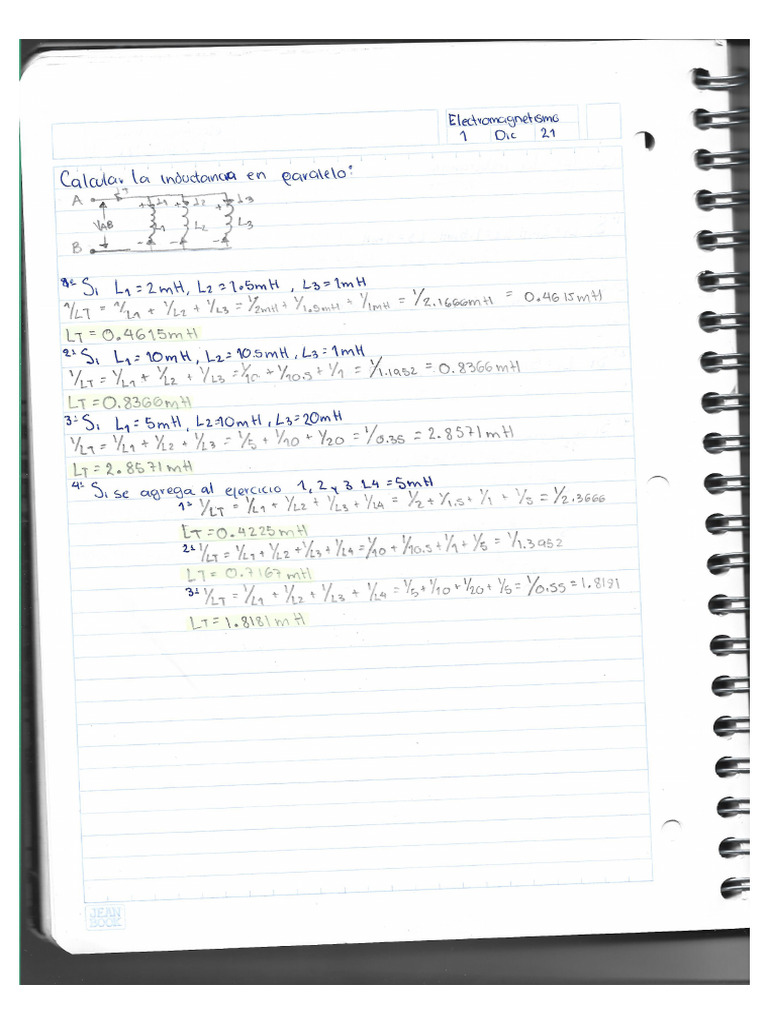 Electromagnetismo
1 Dic 21
Calcular la inductancia en paralelo:
A
+ L1 + L2 + L3
VAB
B
1: Si L1 = 2mH, L2 = 1.5mH, L3 = 1mH
1/LT = 1/L1 + 1/L2 + 1/L3 = 1/2mH + 1/1.5mH + 1/1mH = 1/2.1666mH = 0.4615mH
LT = 0.4615mH
2: Si L1 = 10mH, L2 = 10.5mH, L3 = 1mH
1/LT = 1/L1 + 1/L2 + 1/L3 = 1/10 + 1/10.5 + 1/1 = 1/1.1952 = 0.8366mH
LT = 0.8366mH
3: Si L1 = 5mH, L2 = 10mH, L3 = 20mH
1/LT = 1/L1 + 1/L2 + 1/L3 = 1/5 + 1/10 + 1/20 = 1/0.35 = 2.8571mH
LT = 2.8571mH
4: Si se agrega al ejercicio 1, 2 y 3 L4 = 5mH
1: 1/LT = 1/L1 + 1/L2 + 1/L3 + 1/L4 = 1/2 + 1/1.5 + 1/1 + 1/5 = 1/2.3666
LT = 0.4225mH
2: 1/LT = 1/L1 + 1/L2 + 1/L3 + 1/L4 = 1/10 + 1/10.5 + 1/1 + 1/5 = 1/1.3952
LT = 0.7167mH
3: 1/LT = 1/L1 + 1/L2 + 1/L3 + 1/L4 = 1/5 + 1/10 + 1/20 + 1/5 = 1/0.55 = 1.8181
LT = 1.8181mH
JEAN
BOOK